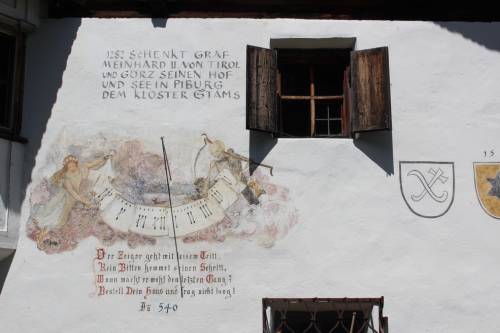 1282 SCHENKT GRAF
MEINHARD II. VON TIROL
UND GÖRZ SEINEN HOF
UND SEE IN PIBURG
DEM KLOSTER STAMS
Der Zeiger geht mit leisem Tritt,
Kein Bitten hemmet seinen Schritt,
Wann macht er wohl den letzten Gang?
Bestell Dein Haus und frag nicht lang!
540
15